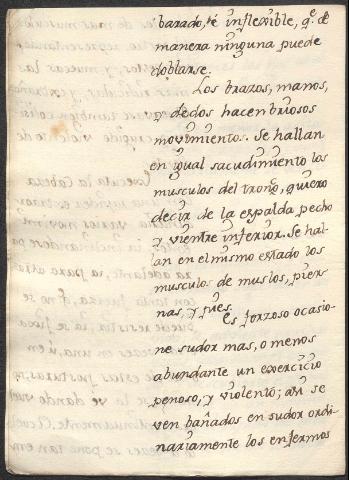 barado, é inflexible, q.e de
manera ninguna puede
doblarse.
Los brazos, manos,
y dedos hacen briosos
movimientos. Se hallan
en igual sacudimiento los
musculos del tronco, quiero
decir de la espalda pecho
y vientre inferior. Se hal-
lan en el mismo estado los
musculos de muslos, pier-
nas, y pies.
Es forzoso ocasio-
ne sudor mas, o menos
abundante un exercicio
penoso, y violento; asi se
ven bañados en sudor ordi-
nariamente los enfermos